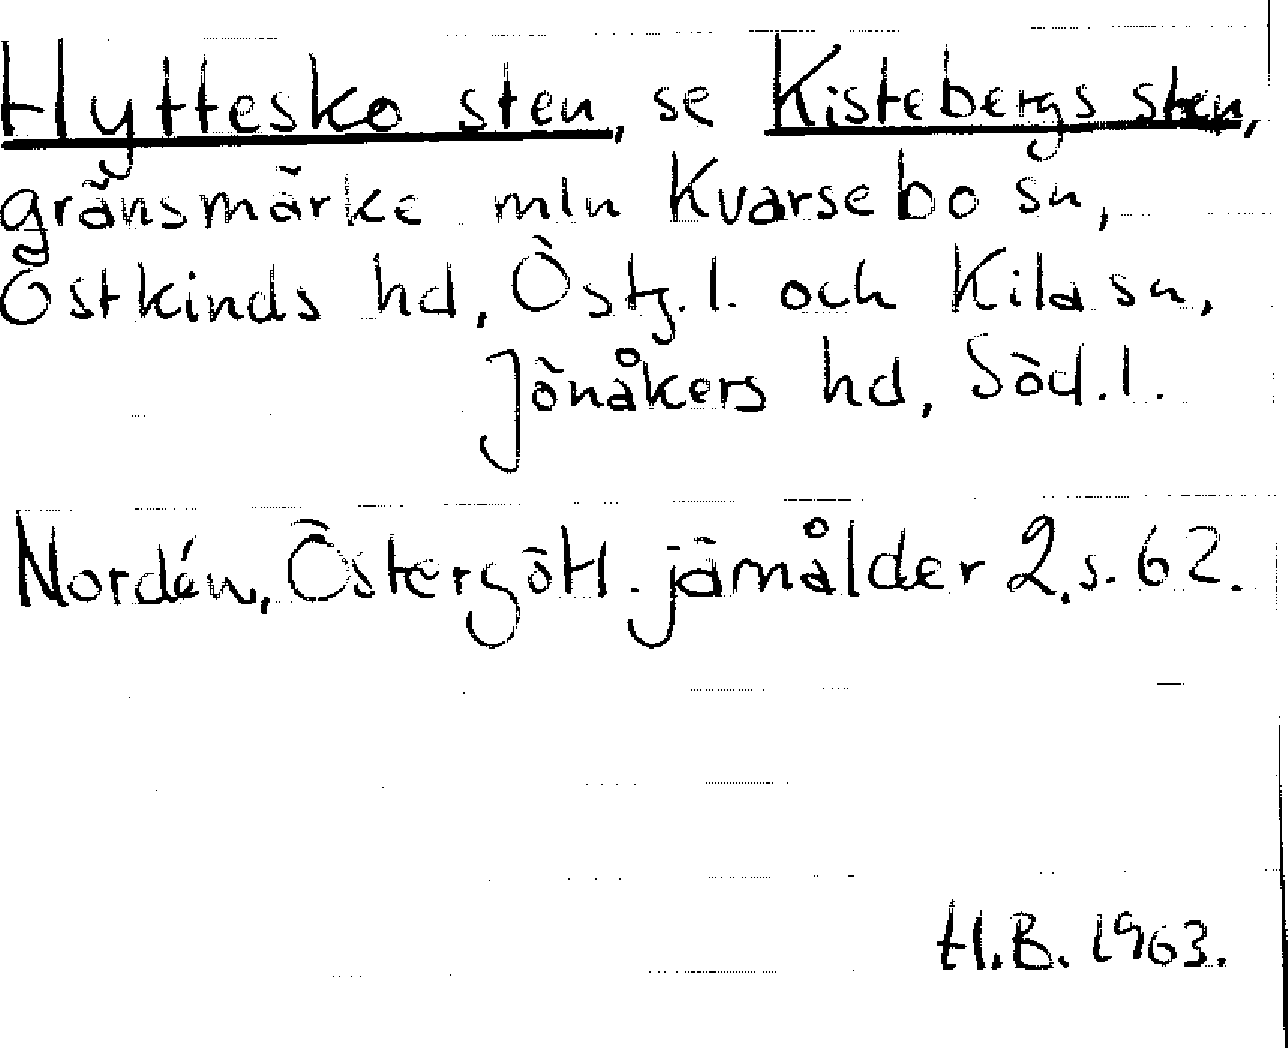 Hyttesko sten, se Kistebergs sten,
gränsmärke mln Kvarsebo sn,
Östkinds hd, Östg.l. och Kila sn,
Jönåkers hd, Söd.l.
Nordén, Östergötl. jämålder 2, s. 62.
H.B. 1963.